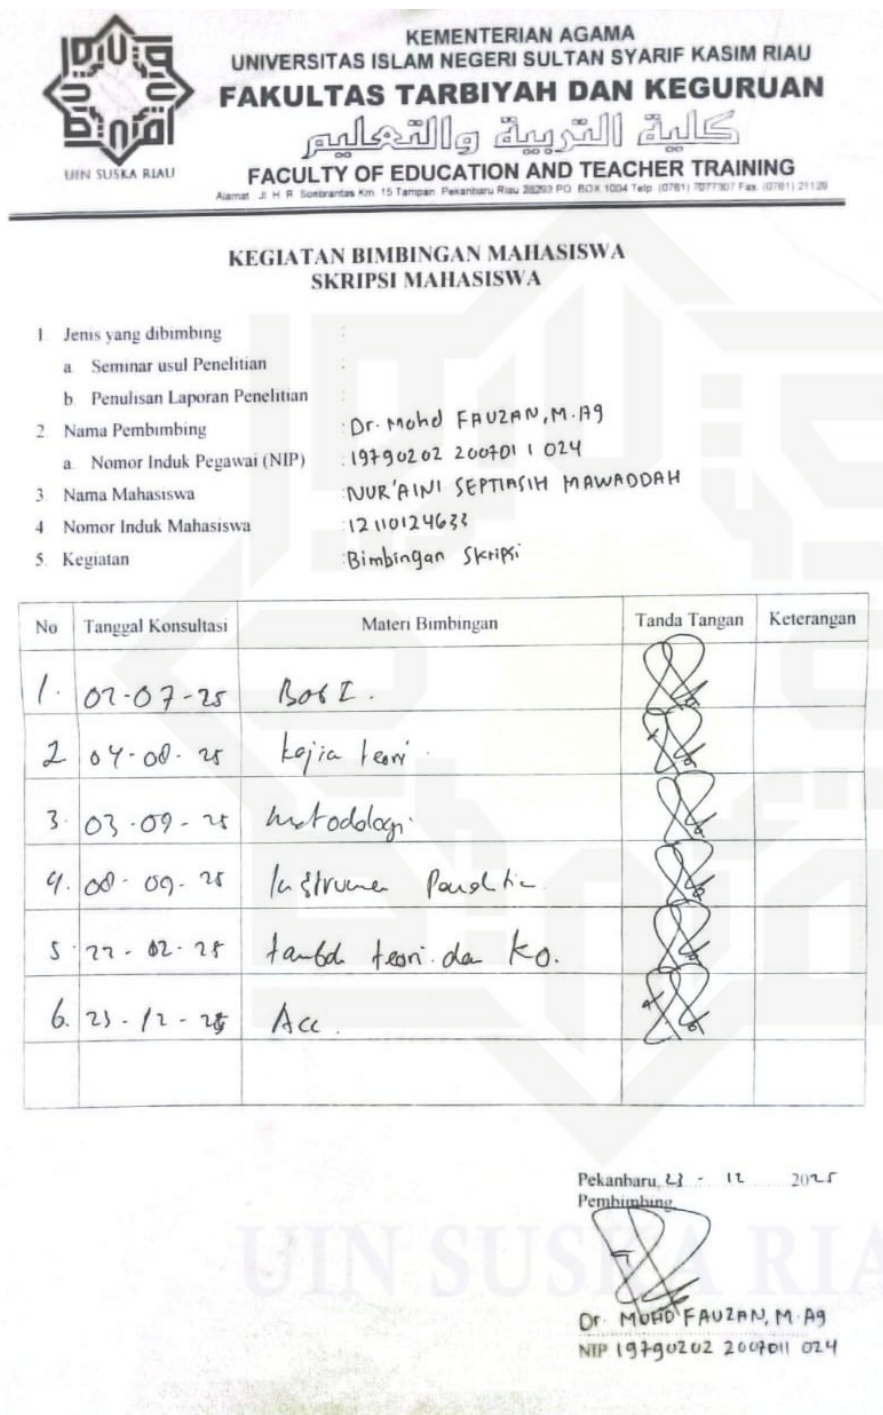 KEMENTERIAN AGAMA
UNIVERSITAS ISLAM NEGERI SULTAN SYARIF KASIM RIAU
FAKULTAS TARBIYAH DAN KEGURUAN
كلية التربية والتعليم
FACULTY OF EDUCATION AND TEACHER TRAINING
UIN SUSKA RIAU
Alamat Jl H R Soebrantas Km 15 Tampan Pekanbaru Riau 28293 PO BOX 1004 Telp (0761) 7077307 Fax (0761) 21129
KEGIATAN BIMBINGAN MAHASISWA
SKRIPSI MAHASISWA
1. Jenis yang dibimbing :
a. Seminar usul Penelitian :
b. Penulisan Laporan Penelitian :
2. Nama Pembimbing : Dr. Mohd FAUZAN, M.Ag
a. Nomor Induk Pegawai (NIP) : 19790202 200701 1 024
3. Nama Mahasiswa : NUR'AINI SEPTIASIH MAWADDAH
4 Nomor Induk Mahasiswa : 12110124633
5. Kegiatan : Bimbingan Skripsi
No Tanggal Konsultasi Materi Bimbingan Tanda Tangan Keterangan
1. 02-07-25 Bab I.
2 04-08-25 kajia teori
3. 03-09-25 metodologi
4. 08-09-25 Instrumen
5. 22-02-25 teori da KO.
6. 23-12-25 Acc.
Pekanbaru, 23 - 12 2025
Pembimbing
Dr. MOHD FAUZAN, M.Ag
NIP 19790202 2007011 024
UIN SUSKA RIA